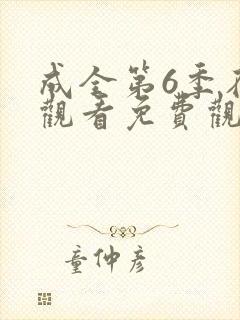 成全第6季在
觀看免費觀
童仲彥